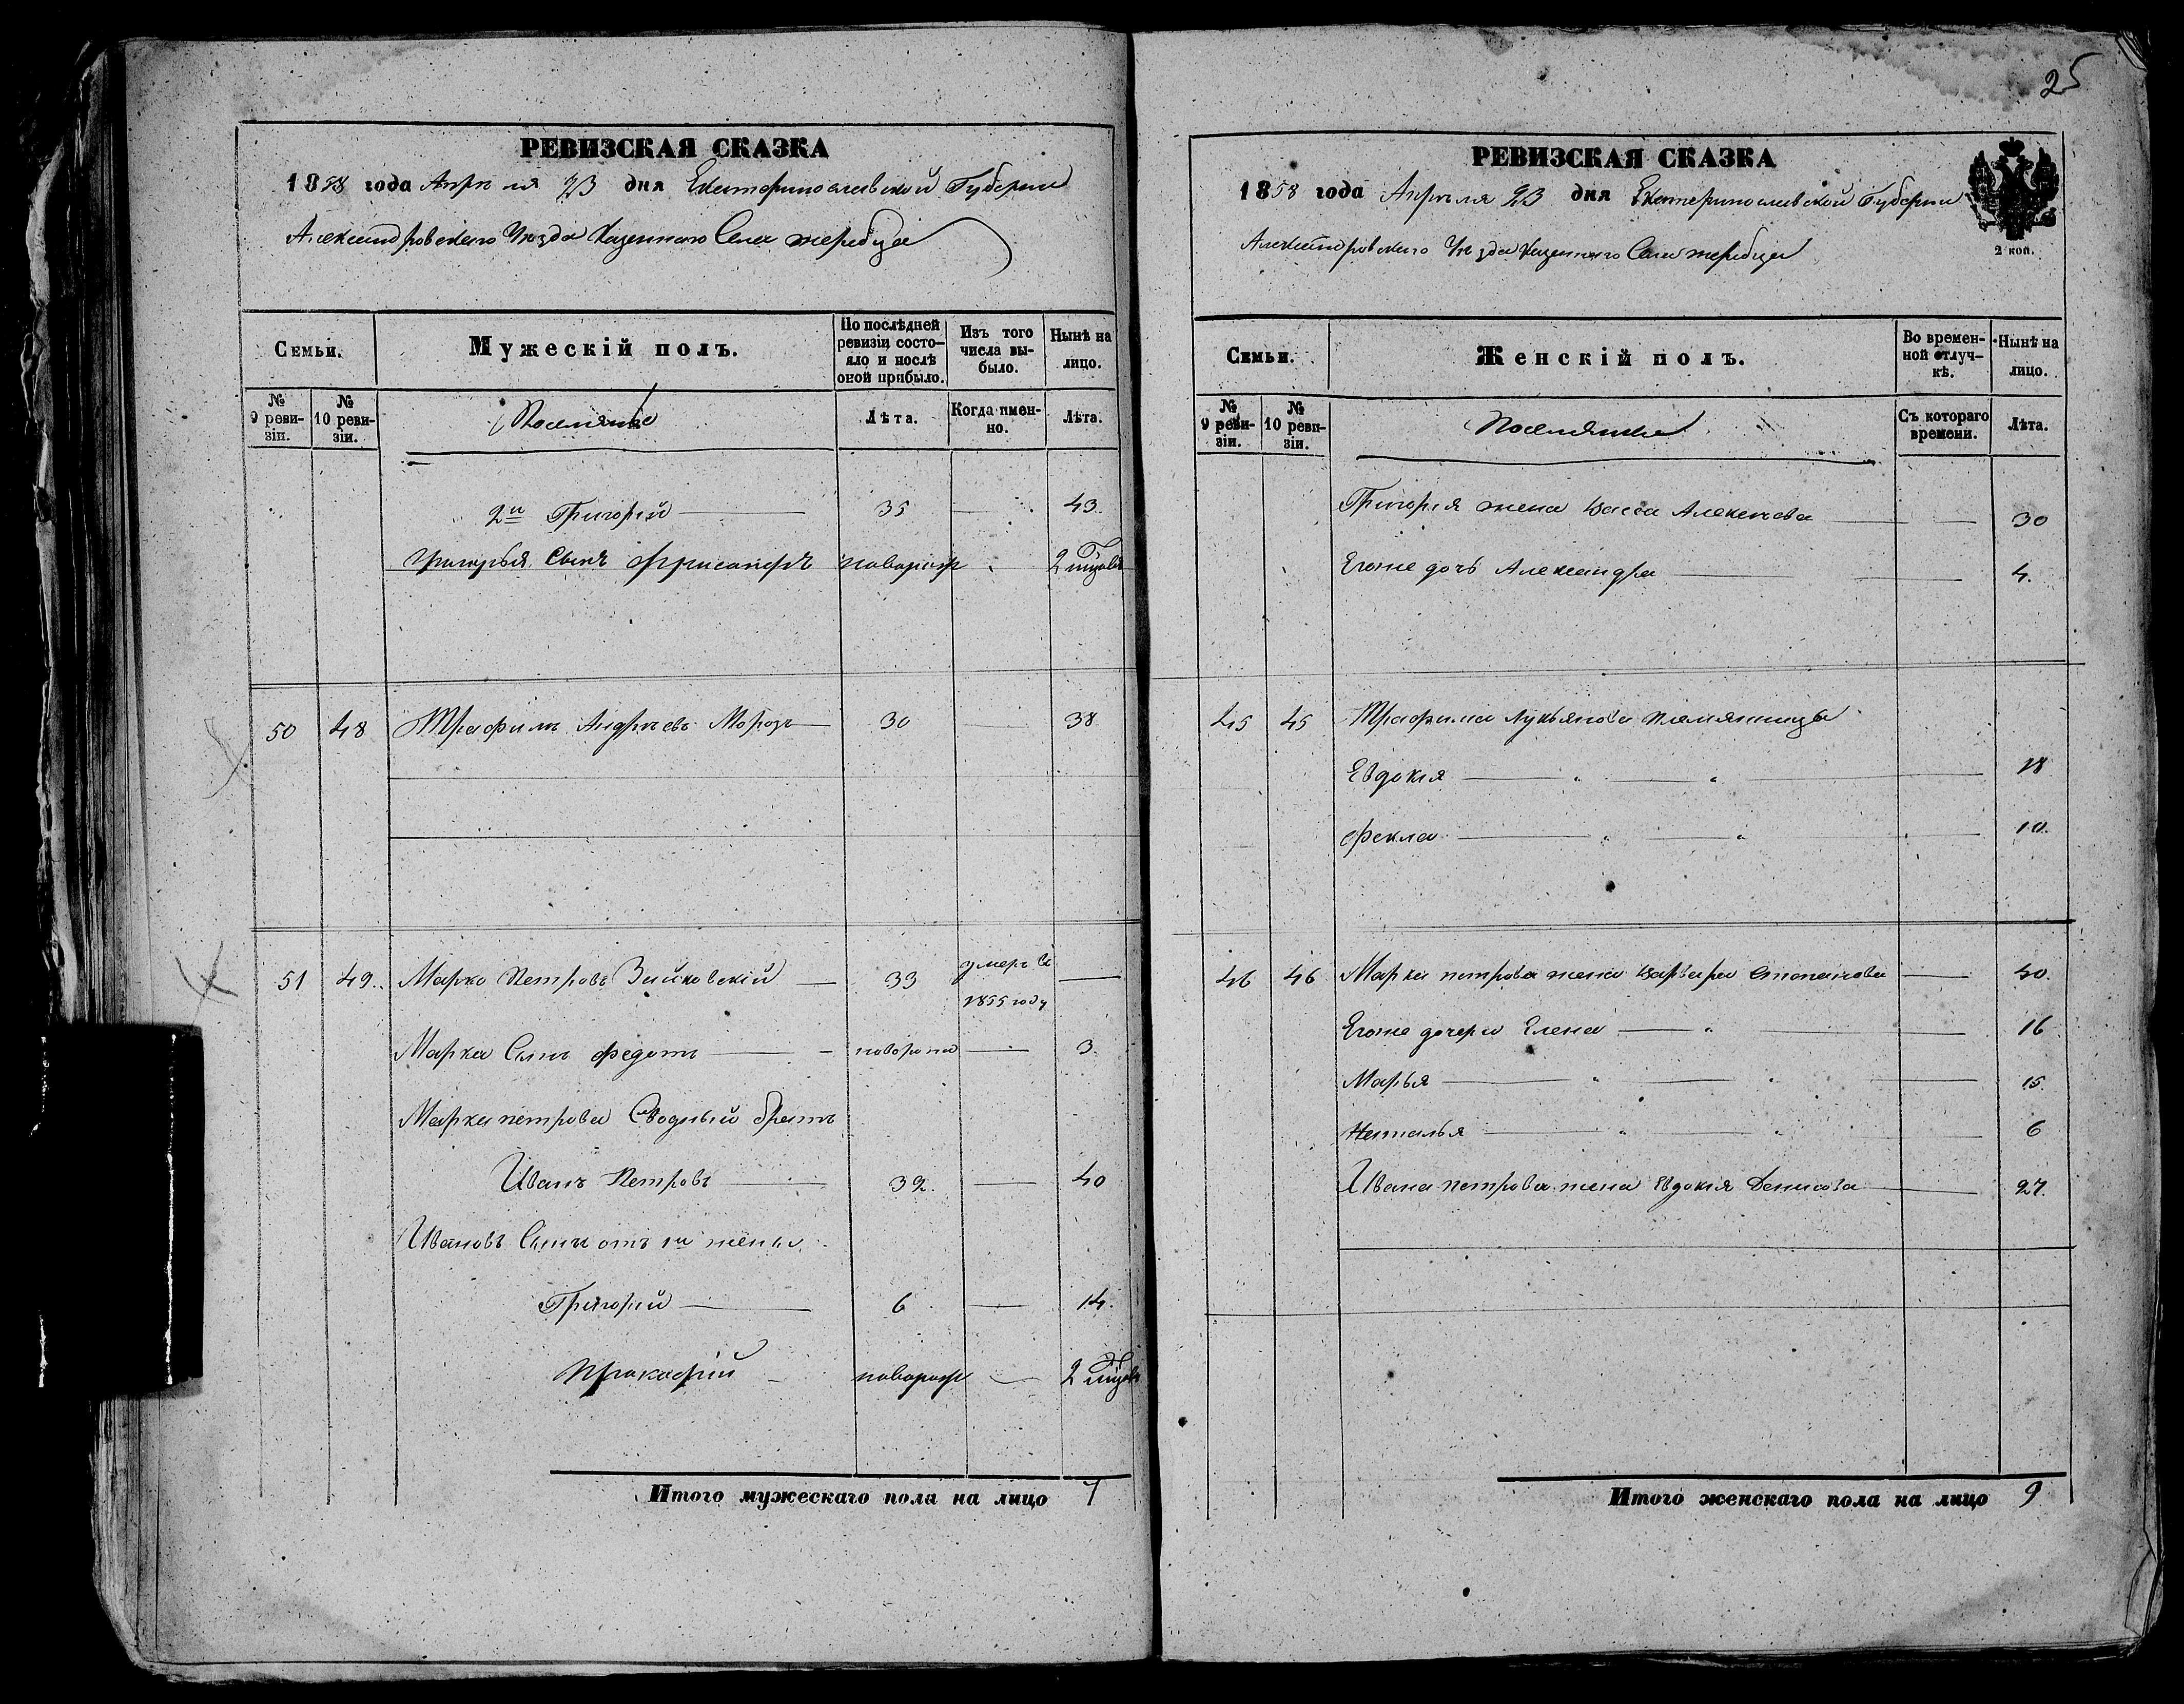 РЕВИЗСКАЯ СКАЗКА
1858 года Апреля 23 дня Екатеринославской Губернии
Александровского Уезда Казенного Села жеребца
Семьи.
Мужескій полъ.
По послѣдней ревизіи состояло и послѣ оной прибыло.
Изъ того числа выбыло.
Нынѣ на лицо.
№ 9 ревизіи.
№ 10 ревизіи.
Поселяне
Лѣта.
Когда имен-но.
Лѣта.
2й Григорій 35 43.
Григорья Сынъ новорож 2
50 48 Трафимъ Андреевъ Морозъ 30 38
51 49. Марко Петровъ Зайковскій 33 умеръ въ
1855 году
Марка Сынъ Федотъ новорож 3.
Марка петрова Сводный братъ
Иванъ Петровъ 32. 40
Ивановъ Сынъ отъ 1й жены
Григорій 6 14.
Прокофій новорож 2
Итого мужескаго пола на лицо 7
25
РЕВИЗСКАЯ СКАЗКА
1858 года Апреля 23 дня Екатеринославской Губернии
Александровского Уезда Казенного Села жеребца
2 коп.
Семьи.
Женскій полъ.
Во времен-ной отлуч-кѣ.
Нынѣ на лицо.
№ 9 реви-зіи.
№ 10 реви-зіи.
Поселянки
Съ котораго времени.
Лѣта.
Григорія жена Васса Алексеева 30
Егоже дочь Александра 4.
45 45 Трафима Лукьянова племянницы
Евдокія 18
Фекла 10.
46 46 Марка петрова жена Варвара Степанова 40.
Егоже дочери Елена 16
Марья 15.
Наталья 6
Ивана петрова жена Евдокія Денисова 27.
Итого женскаго пола на лицо 9